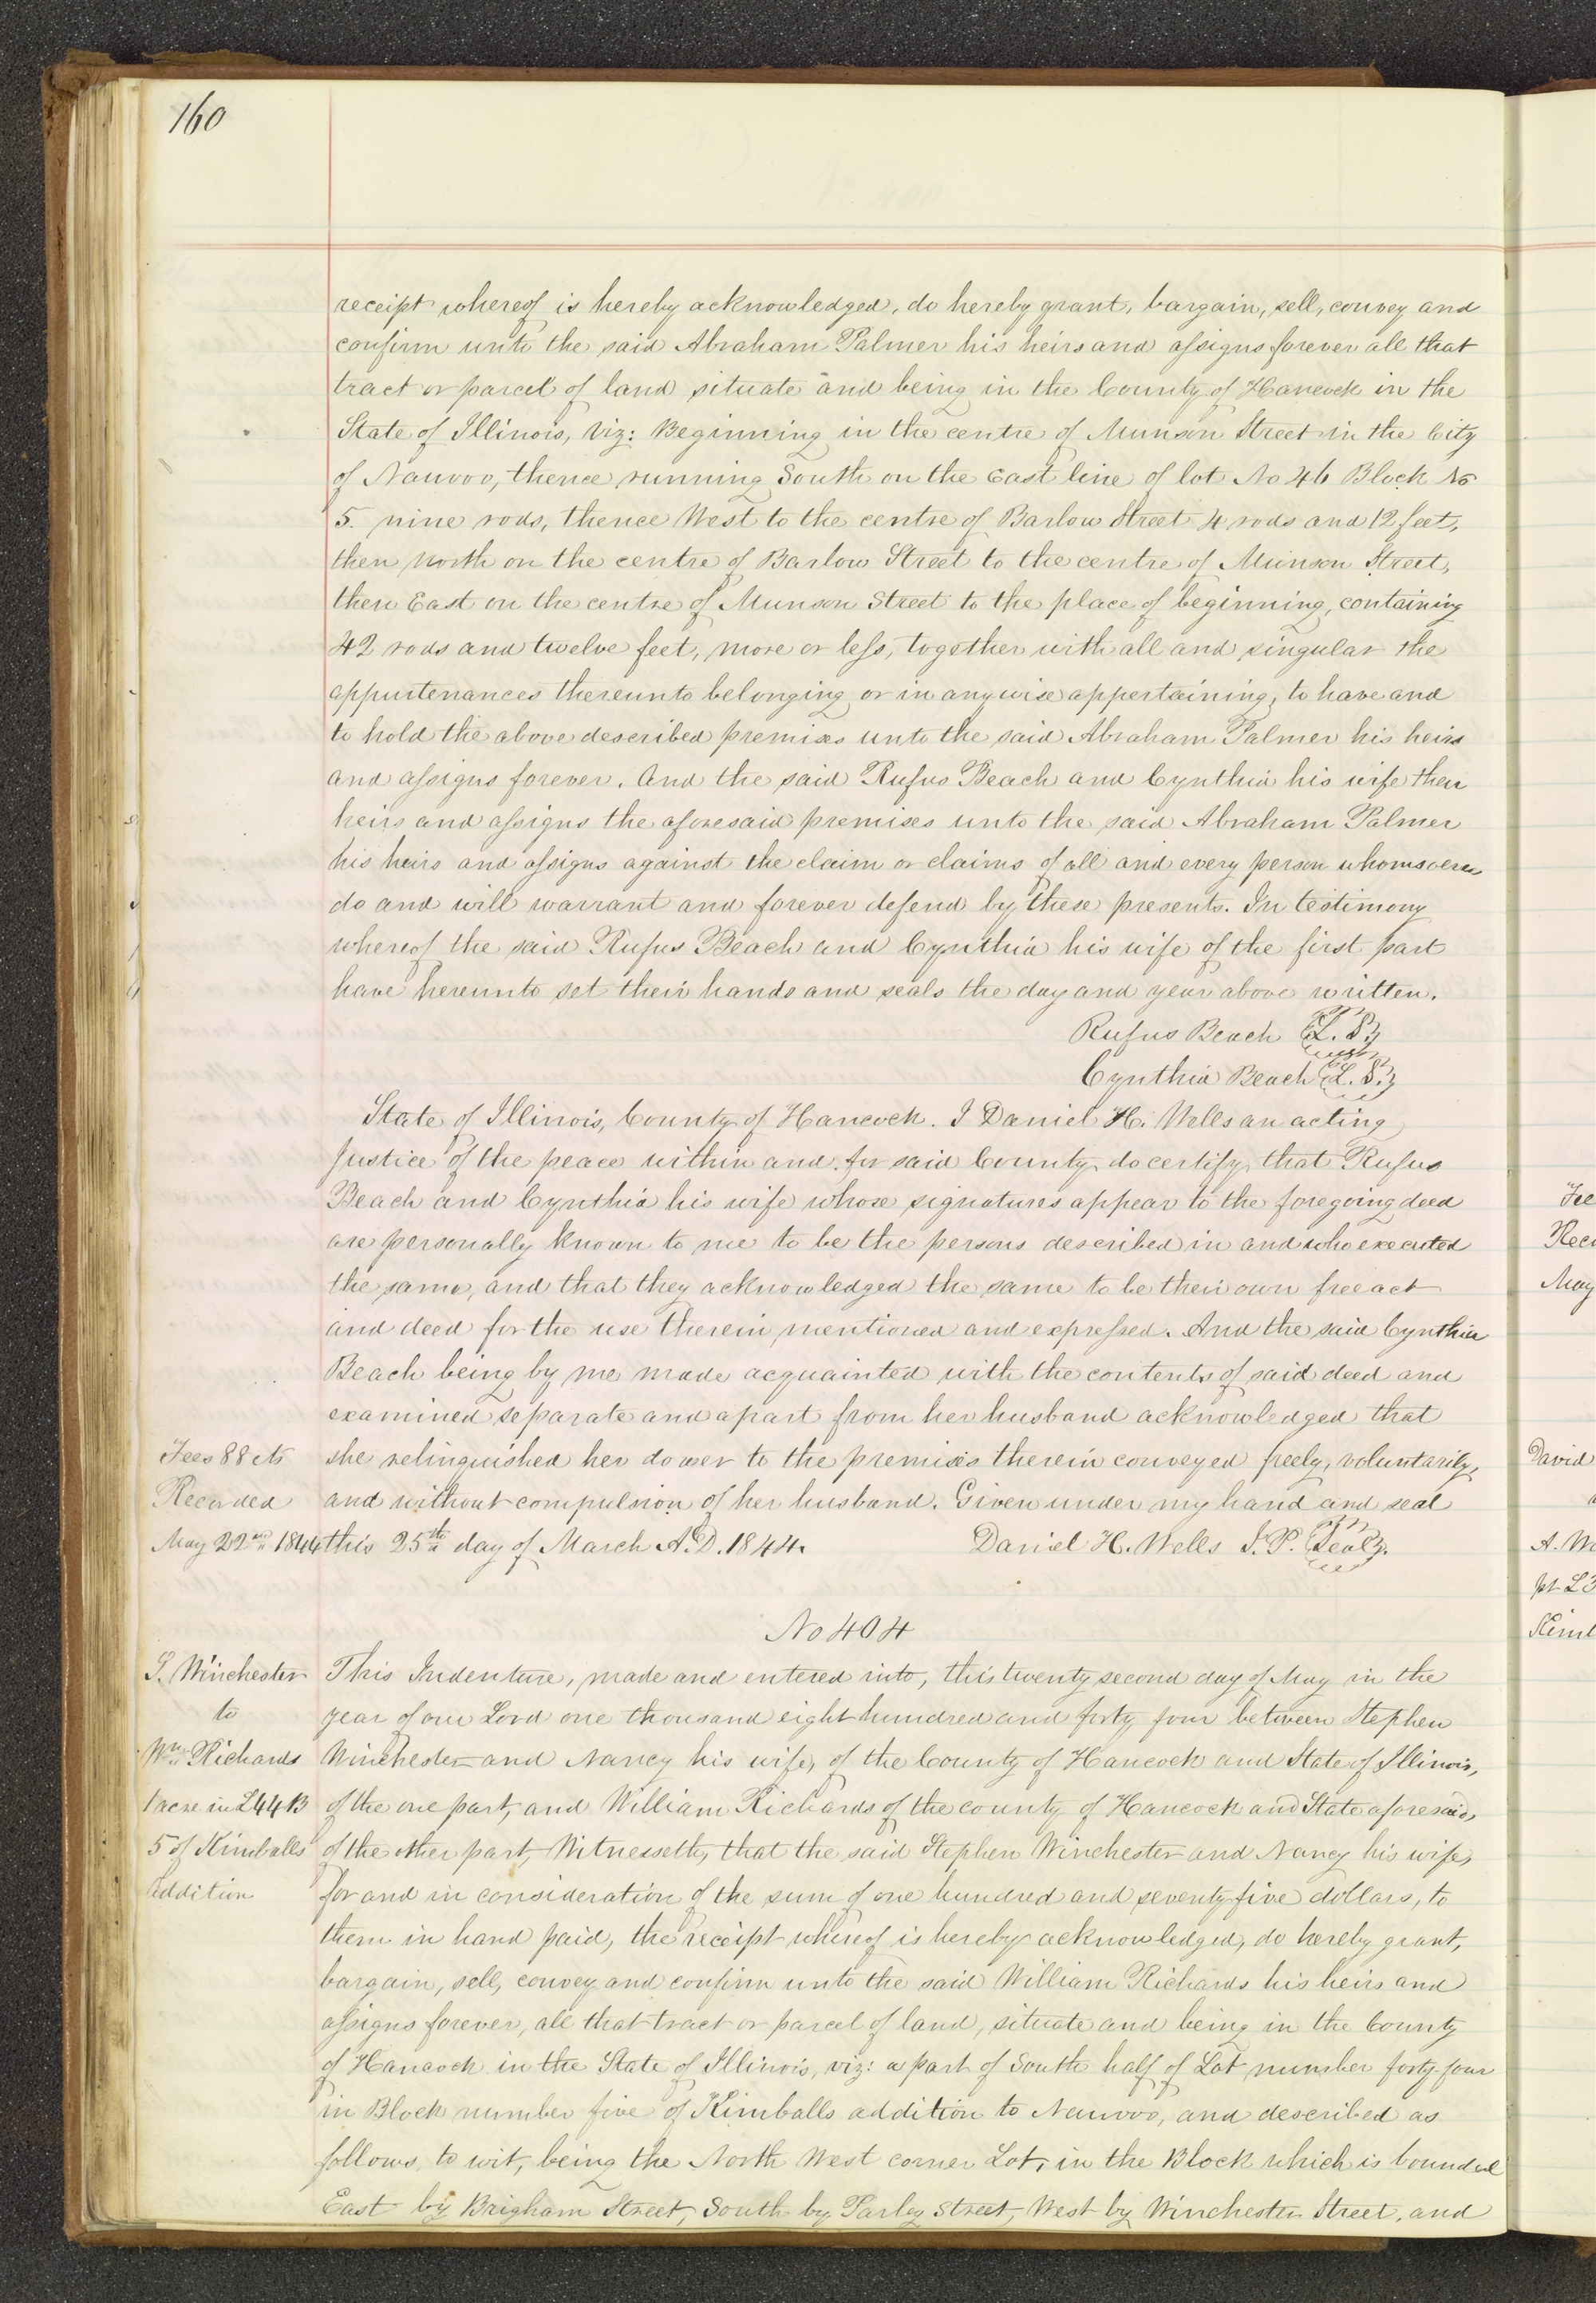 160
receipt whereof is hereby acknowledged, do hereby grant, bargain, sell, convey and
confirm unto the said Abraham Palmer his heirs and assigns forever all that
tract or parcel of land situate and being in the County of Hancock in the
State of Illinois, viz: Beginning in the centre of Munson Street in the City
of Nauvoo, thence running South on the East line of lot No 46 Block No
5. nine rods, thence West to the centre of Barlow Street 4 rods and 12 feet,
then North on the centre of Barlow Street to the centre of Munson Street,
then East on the centre of Munson Street to the place of beginning, containing
42 rods and twelve feet, more or less, together with all and singular the
appurtenances thereunto belonging or in any wise appertaining, to have and
to hold the above described premises unto the said Abraham Palmer his heirs
and assigns forever. And the said Rufus Beach and Cynthia his wife their
heirs and assigns the aforesaid premises unto the said Abraham Palmer
his heirs and assigns against the claim or claims of all and every person whomsoever
do and will warrant and forever defend by these presents. In testimony
whereof the said Rufus Beach and Cynthia his wife of the first part
have hereunto set their hands and seals the day and year above written.
Rufus Beach L. S.
Cynthia Beach L. S.
State of Illinois, County of Hancock. I Daniel H. Wells an acting
Justice of the peace within and for said County do certify that Rufus
Beach and Cynthia his wife whose signatures appear to the foregoing deed
are personally known to me to be the persons described in and who executed
the same, and that they acknowledged the same to be their own free act
and deed for the use therein mentioned and expressed. And the said Cynthia
Beach being by me made acquainted with the contents of said deed and
examined separate and apart from her husband acknowledged that
Fees 88 cts she relinquished her dower to the premises therein conveyed freely, voluntarily,
Recorded and without compulsion of her husband. Given under my hand and seal
May 22nd 1844 this 25th day of March A.D. 1844. Daniel H. Wells J. P. Seal
No 404
S. Winchester This Indenture, made and entered into, this twenty second day of May in the
to year of our Lord one thousand eight hundred and forty four between Stephen
Wm Richards Winchester and Nancy his wife, of the County of Hancock and State of Illinois,
1 acre in L44 B of the one part, and William Richards of the county of Hancock and State aforesaid,
5 of Kimballs of the other part, Witnesseth, that the said Stephen Winchester and Nancy his wife,
addition for and in consideration of the sum of one hundred and seventy five dollars, to
them in hand paid, the receipt whereof is hereby acknowledged, do hereby grant,
bargain, sell, convey and confirm unto the said William Richards his heirs and
assigns forever, all that tract or parcel of land, situate and being in the County
of Hancock in the State of Illinois, viz: a part of South half of Lot number forty-four
in Block number five of Kimballs addition to Nauvoo, and described as
follows, to wit, being the North West corner Lot, in the Block which is bounded
East by Brigham Street, South by Parley Street, West by Winchester Street, and
Fee
Reco
May
David
A. Wo
pt L3
Kimb